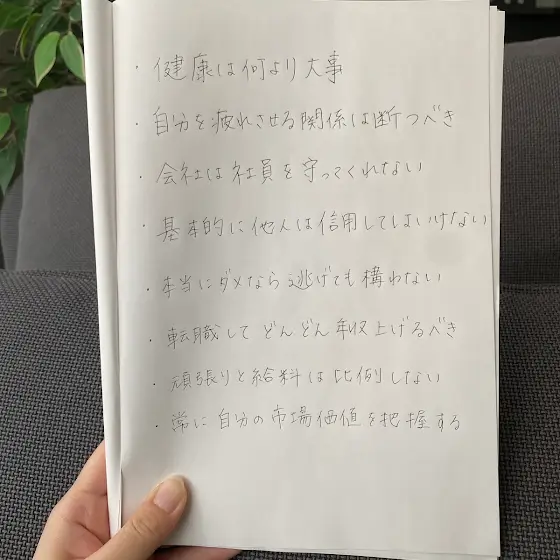 ・健康は何より大事
・自分を疲れさせる関係は断つべき
・会社は社員を守ってくれない
・基本的に他人は信用してはいけない
・本当にダメなら逃げても構わない
・転職してどんどん年収上げるべき
・頑張りと給料は比例しない
・常に自分の市場価値を把握する